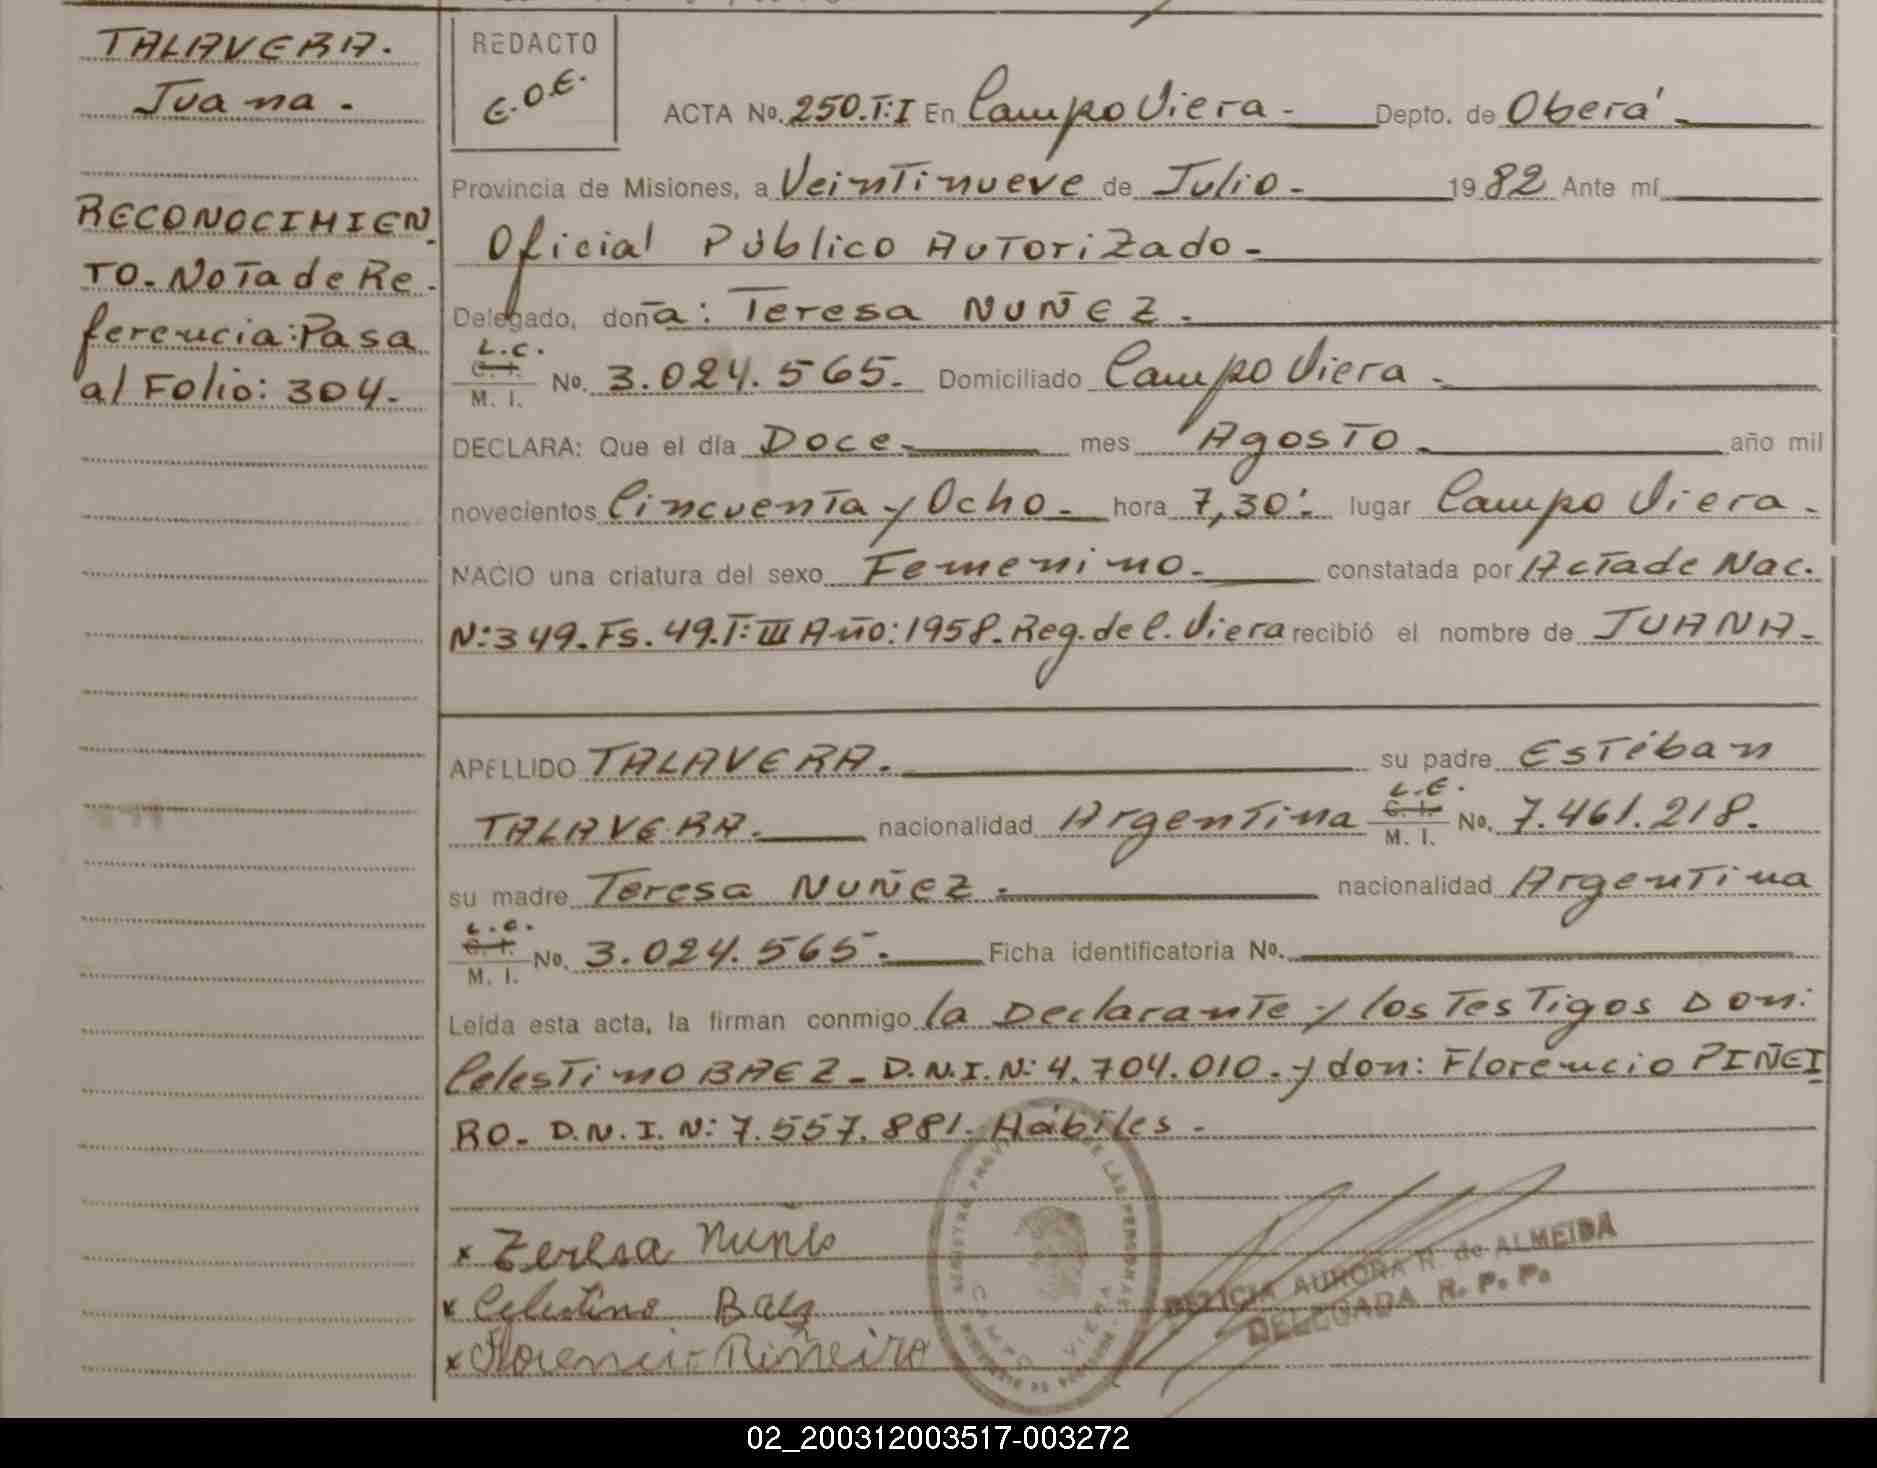 TALAVERA.
Juana.
RECONOCIMIEN
TO. Nota de Re.
ferencia: Pasa
al Folio: 304.
REDACTO
E.O.E.
ACTA No. 250.T:I En Campo Viera. Depto. de Oberá.
Provincia de Misiones, a Veintinueve de Julio. 1982 Ante mí
Oficial Público Autorizado.
Delegado, doña: Teresa NUÑEZ.
L.C.
C. I.
M. I. No. 3.024.565. Domiciliado Campo Viera.
DECLARA: Que el día Doce. mes Agosto. año mil
novecientos Cincuenta y Ocho. hora 7,30'. lugar Campo Viera.
NACIO una criatura del sexo Femenino. constatada por Acta de Nac.
N:349. Fs. 49. T:III Año:1958. Reg. de C. Viera recibió el nombre de JUANA.
APELLIDO TALAVERA. su padre Estéban
TALAVERA. nacionalidad Argentina L.E. C. I. M. I. No. 7.461.218.
su madre Teresa NUÑEZ. nacionalidad Argentina
L.C.
C. I.
M. I. No. 3.024.565. Ficha identificatoria No.
Leída esta acta, la firman conmigo la Declarante y los Testigos Don:
Celestino BAEZ. D.N.I.N: 4.704.010. y don: Florencio PIÑEI
RO. D.N.I.N: 7.557.881. Hábiles.
x Teresa Nuñes
x Celestino Baez
x Florencio Piñeiro
CAMPO VIERA
AURORA R. de ALMEIDA
DELEGADA R. P. P.
02_200312003517-003272